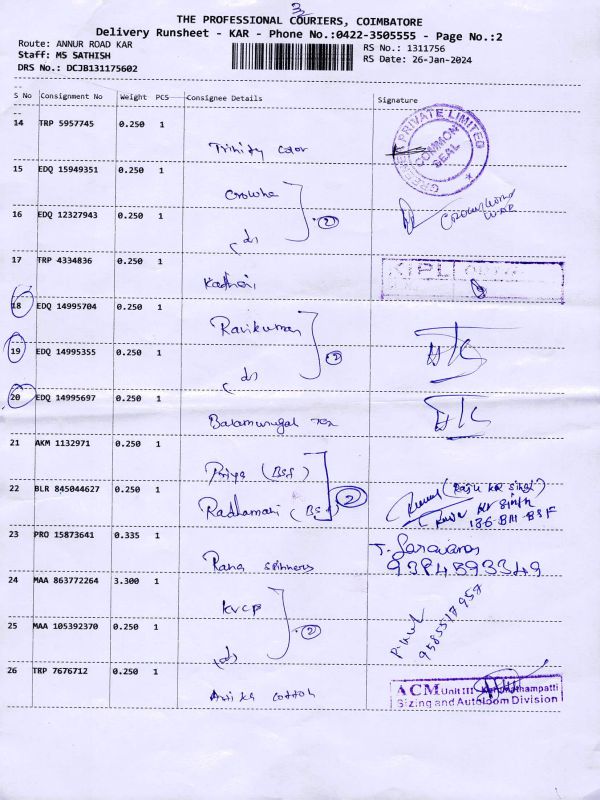 3
THE PROFESSIONAL COURIERS, COIMBATORE
Delivery Runsheet - KAR - Phone No.:0422-3505555 - Page No.:2
Route: ANNUR ROAD KAR
Staff: MS SATHISH
DRS No.: DCJB131175602
RS No.: 1311756
RS Date: 26-Jan-2024
S No Consignment No Weight PCS Consignee Details Signature
14 TRP 5957745 0.250 1
Trinity color
PRIVATE LIMITED
COMMON SEAL
15 EDQ 15949351 0.250 1
16 EDQ 12327943 0.250 1
(2)
(ds)
17 TRP 4334836 0.250 1
KIPL
18 EDQ 14995704 0.250 1
Ravikumar
19 EDQ 14995355 0.250 1
(2)
(ds)
20 EDQ 14995697 0.250 1
Balamurugan Tex
21 AKM 1132971 0.250 1
Priya (BSF)
22 BLR 845044627 0.250 1
Radhamani (BSF)
(2)
136 BN BSF
23 PRO 15873641 0.335 1
Rana spinners
9384593349
24 MAA 863772264 3.300 1
KVCP
25 MAA 105392370 0.250 1
(2)
(ds)
9585517957
26 TRP 7676712 0.250 1
cotton
ACM Unit III
Sizing and Autoloom Division